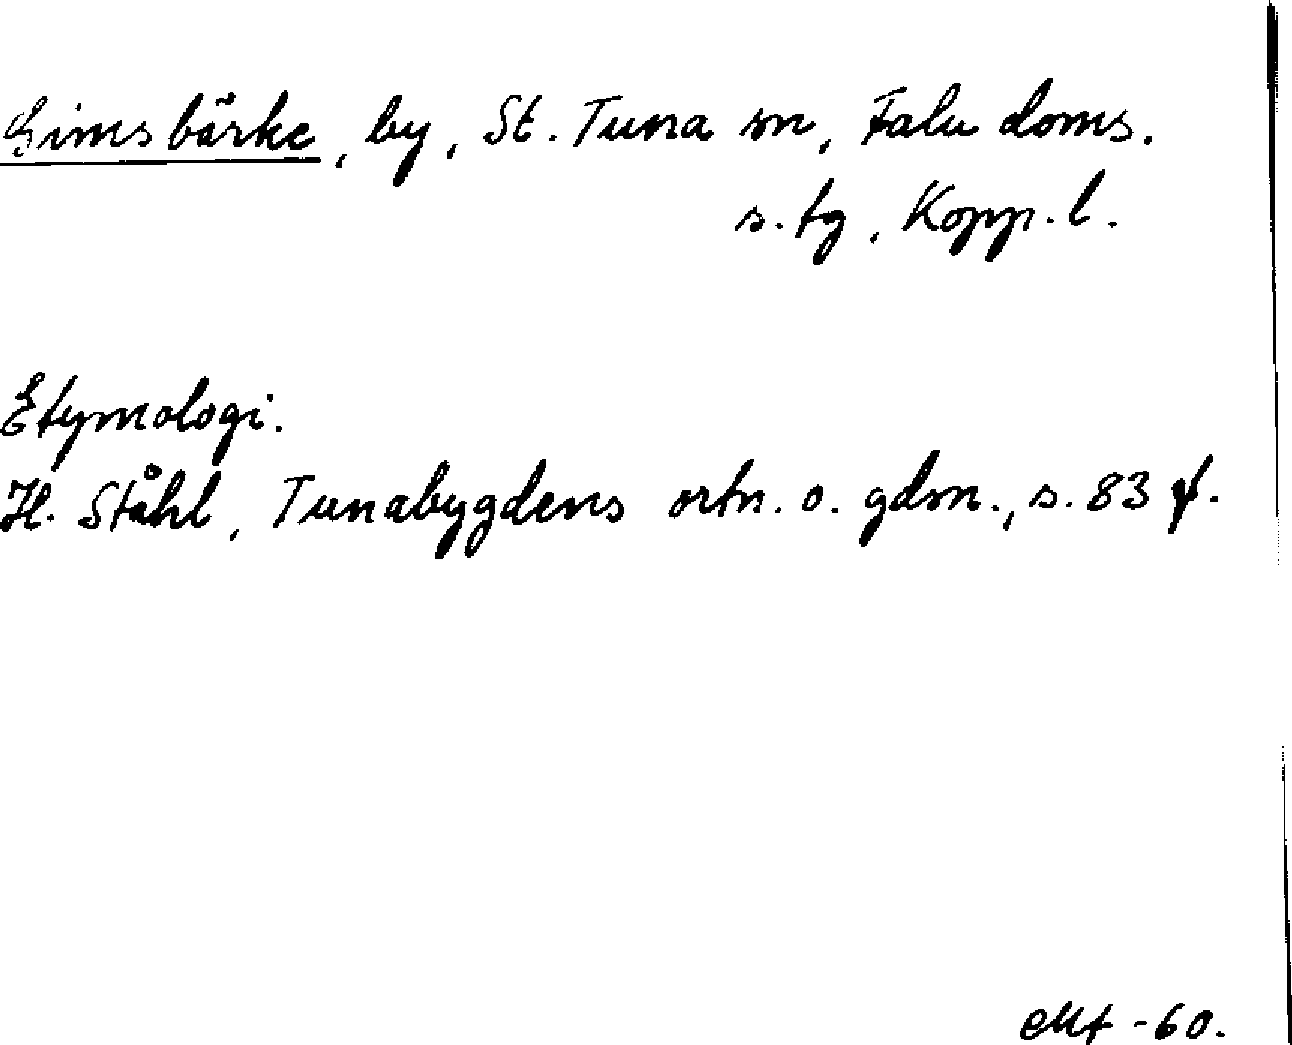 Gimsbärke, by, St. Tuna sn, Falu doms.
s. tg, Kopp. l.
Etymologi.
H. Ståhl, Tunabygdens ortn. o. gdsn., s. 83 f.
-60.